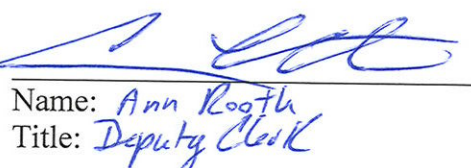 Name: Ann Rooth
Title: Deputy Clerk